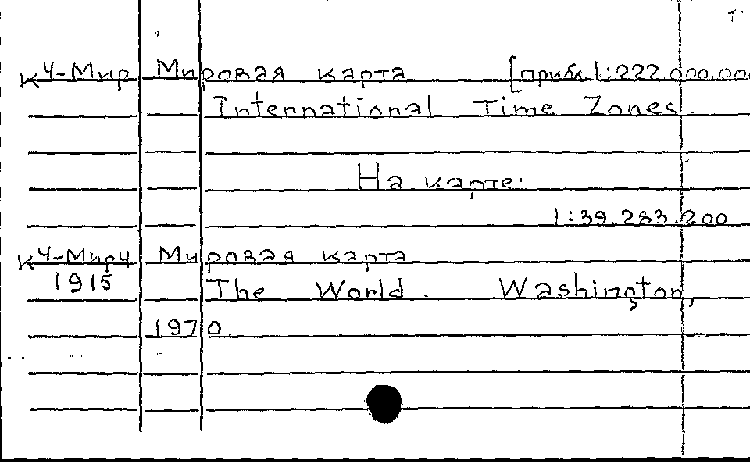 К4-Мир Мировая карта [прибл. 1:222.000.000
International Time Zones.
На карте:
1:39.283.200
К4-Мир4 Мировая карта
1915 The World. Washington,
1970.